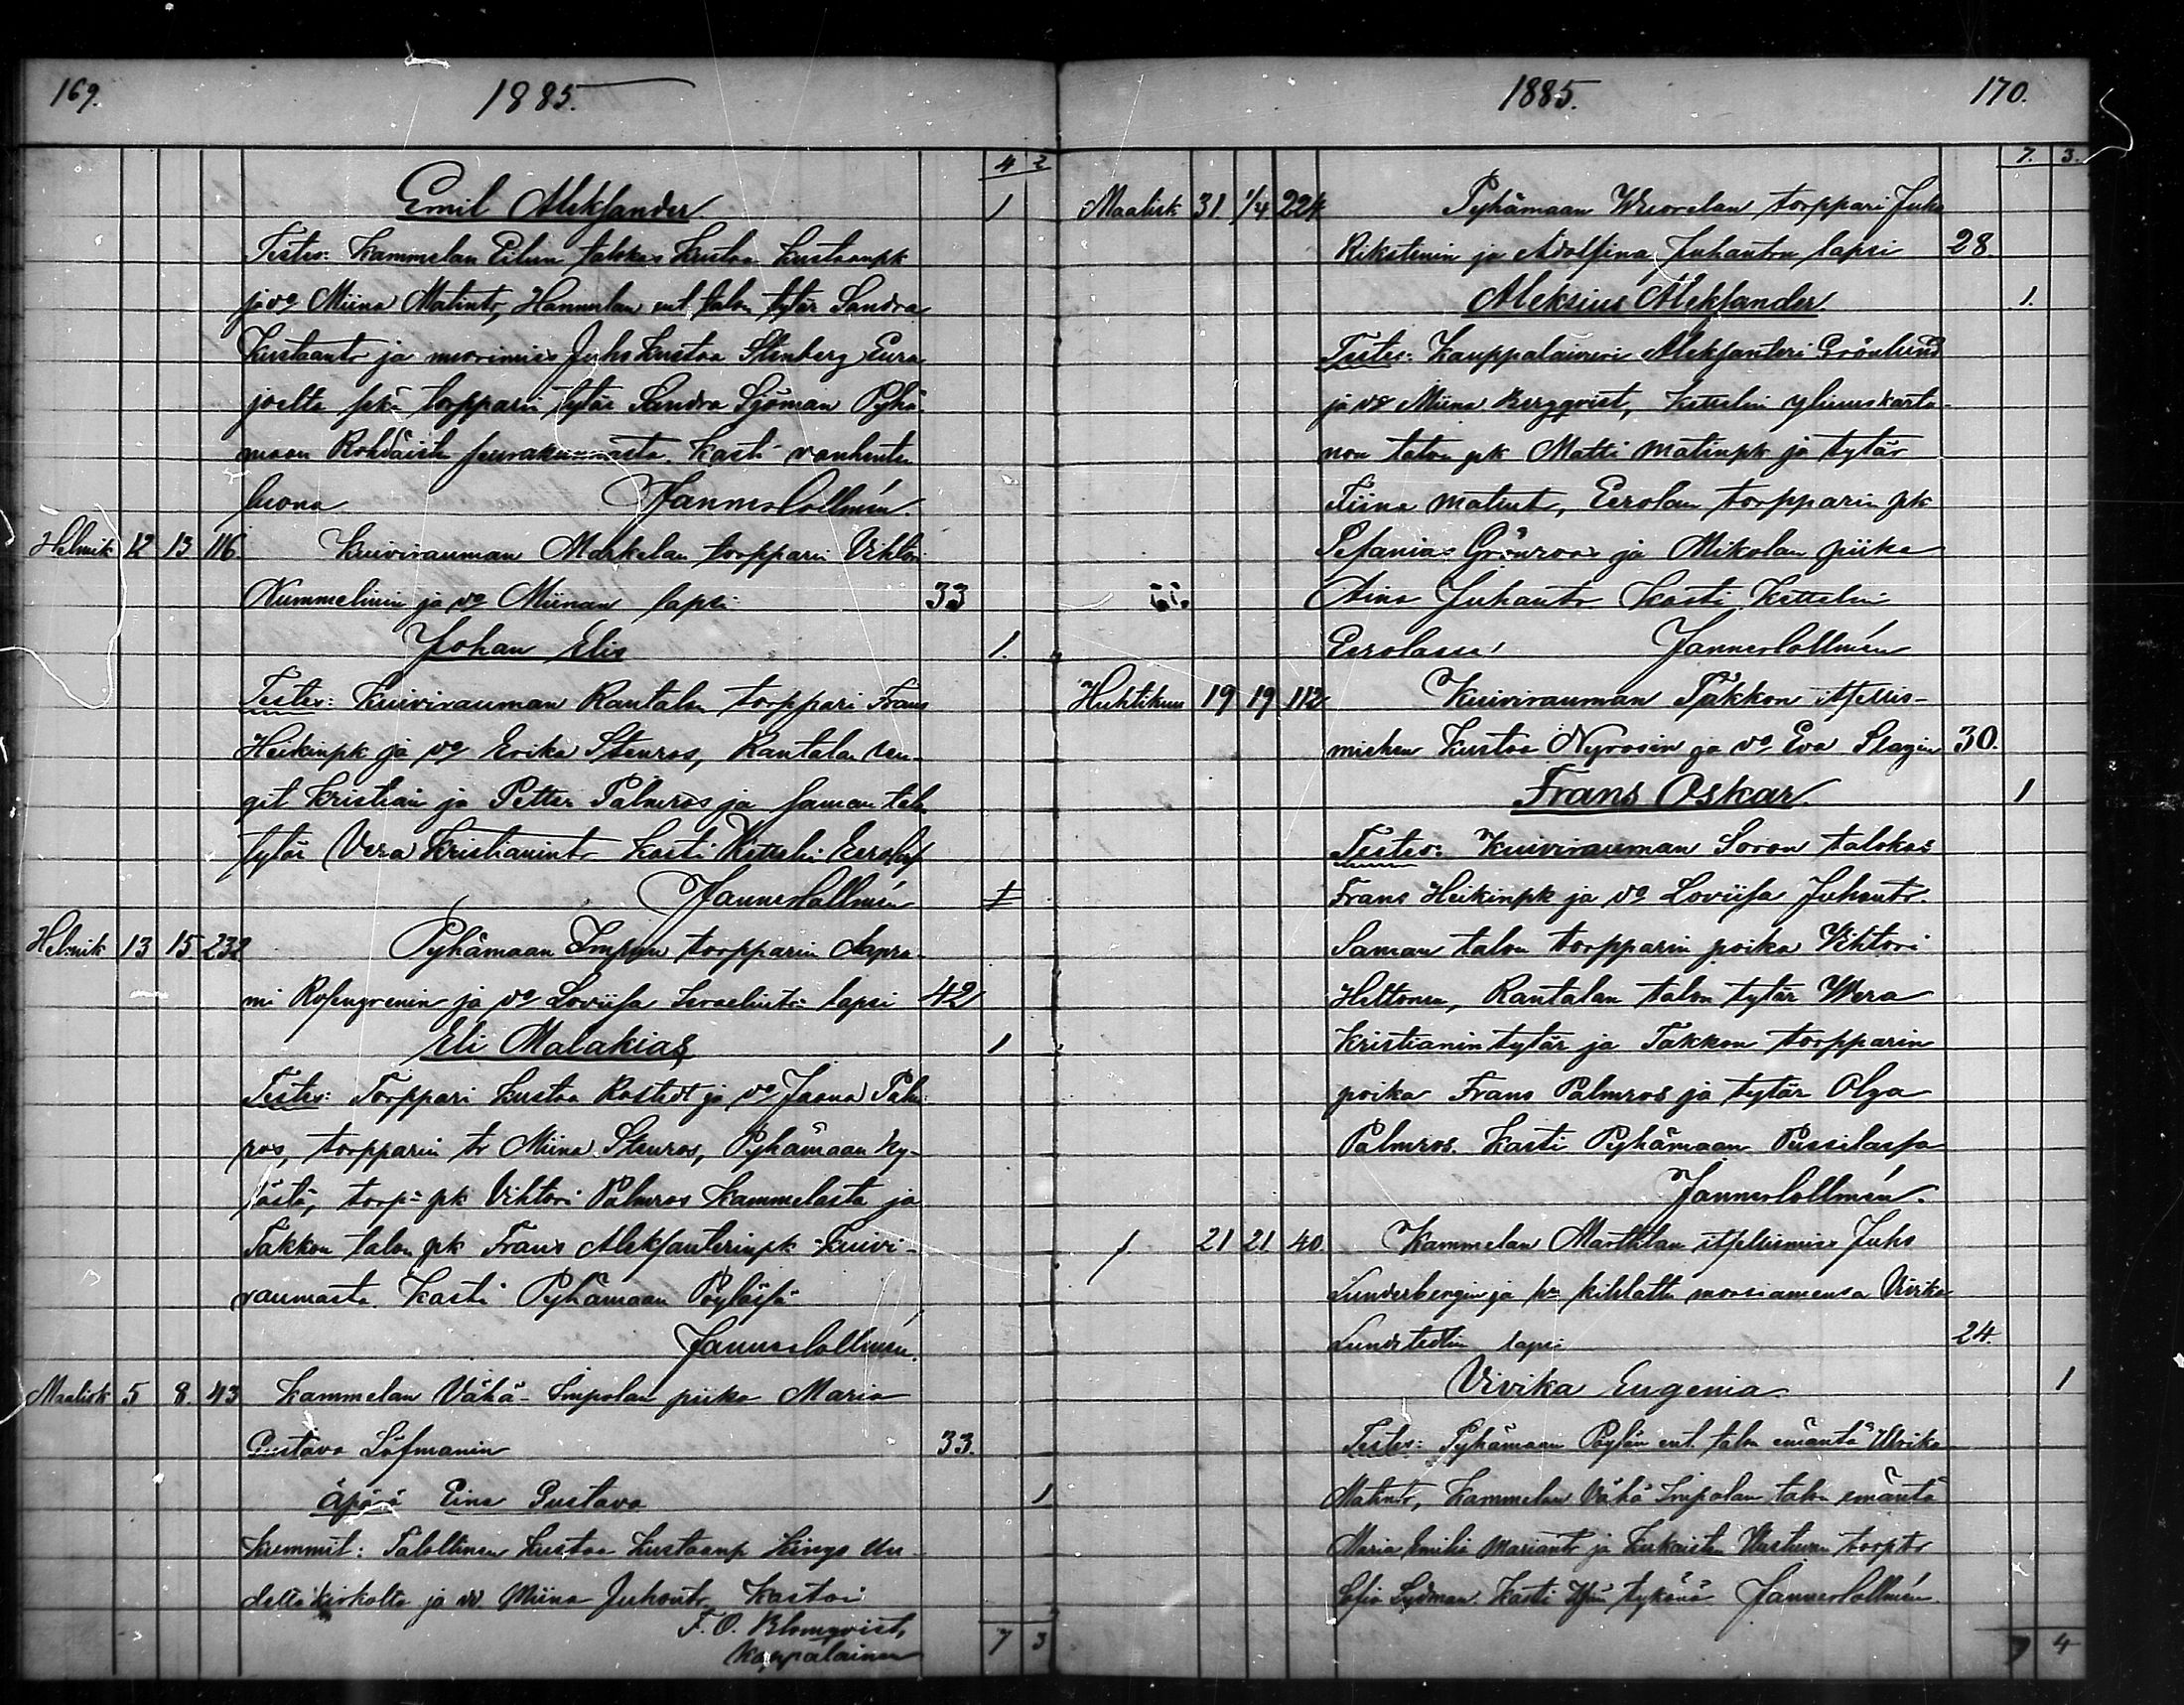 169. 1885.
4 2
Emil Aleksander 1
Testes: Kammelan Eilun talokas Kustaa Kustaanpk
ja vo Miina Matintr, Hannulan ent. talon tytär Sandra
Kustaantr ja nuorimies Juho Kustaa Stenberg Eura-
joelta sekä torpparin tytär Sandra Sjöman Pyhä-
maan Rohdaisten seurakunnasta. Kasti vanhenten
luona Janne Collmén.
Helmik 12 13 116. Kuivirauman Markelan torpparin Vihtori
Nummelinin ja vo Miinan lapsi 33
Johan Elis 1.
Testes: Kuivirauman Rantalan torppari Frans
Heikinpk ja vo Erika Stenros, Rantalan ren-
git Kristian ja Petter Palmros ja saman talon
tytär Vera Kristianintr Kasti Kettelin Eerolass
Janne Collmén
Helmik 13 15 232 Pyhämaan Impun torpparin Aapra-
mi Rosengrenin ja vo Loviisa Israelintr lapsi 42
Eli Malakias 1
Testes: Torppari Kustaa Rostedt ja vo Jaana Palm-
ros, torpparin tr Miina Stenros, Pyhämaan ky-
lästä, torp pk Vihtori Palmros Kammelasta ja
Takkon talon pk Frans Aleksanterinpk Kuivi-
raumasta. Kasti Pyhämaan Pöylässä
Janne Collmén.
Maalisk 5 8. 43 Kammelan Vähä-Impolan piika Maria
Gustava Löfmanin 33.
äpärä Eina Gustava 1
Kummit: Talollinen Kustaa Kustaanp Kings Uu-
delta kirkolta ja vo. Miina Juhontr. Kastoi
F. O. Blomqvist,
kappalainen
7 3
1885. 170.
7. 3.
Maalisk 31 1/4 224 Pyhämaan Wuorelan torppari Juha
Rikstenin ja Adolfina Juhantrn lapsi 28.
Aleksius Aleksander 1.
Testes: Kauppalainen Aleksanteri Grönlund
ja vo Miina Bergqvist, Kettelin ylinenkarta-
non talon pk Matti Matinpk ja tytär
Tiina Matint, Eerolan torpparin pk
Sefanias Grönroos ja Mikolan piika
Aina Juhantr Kasti Kettelin
Eerolassa Janne Collmén
Huhtikuu 19 19 112 Kuivirauman Takkon itsellis-
miehen Kustaa Nyrosin ja vo Eva Slagin 30.
Frans Oskar. 1
Testes: Kuivirauman Soron talokas
Frans Heikinpk ja vo Loviisa Juhontr.
Saman talon torpparin poika Vihtori
Heltonen, Rantalan talon tytär Wera
Kristianintytär ja Takkon torpparin
poika Frans Palmros ja tytär Olga
Palmros. Kasti Pyhämaan Pussilassa
Janne Collmén.
21 21 40 Kammelan Marttilan itsellismies Juho
Lunderbergin ja hn kihlattu morsiamensa Vivika
Lundstedtin lapsi 24.
Vivika Eugenia 1
Testes: Pyhämaan Pöylän ent. talon emäntä Ulrika
Matintr, Kammelan Vähä Impolan talon emäntä
Maria Emilia Mariantr ja Kukaisten torptr
Sofia Sydman. Kasti tykönä Janne Collmén.
9 4